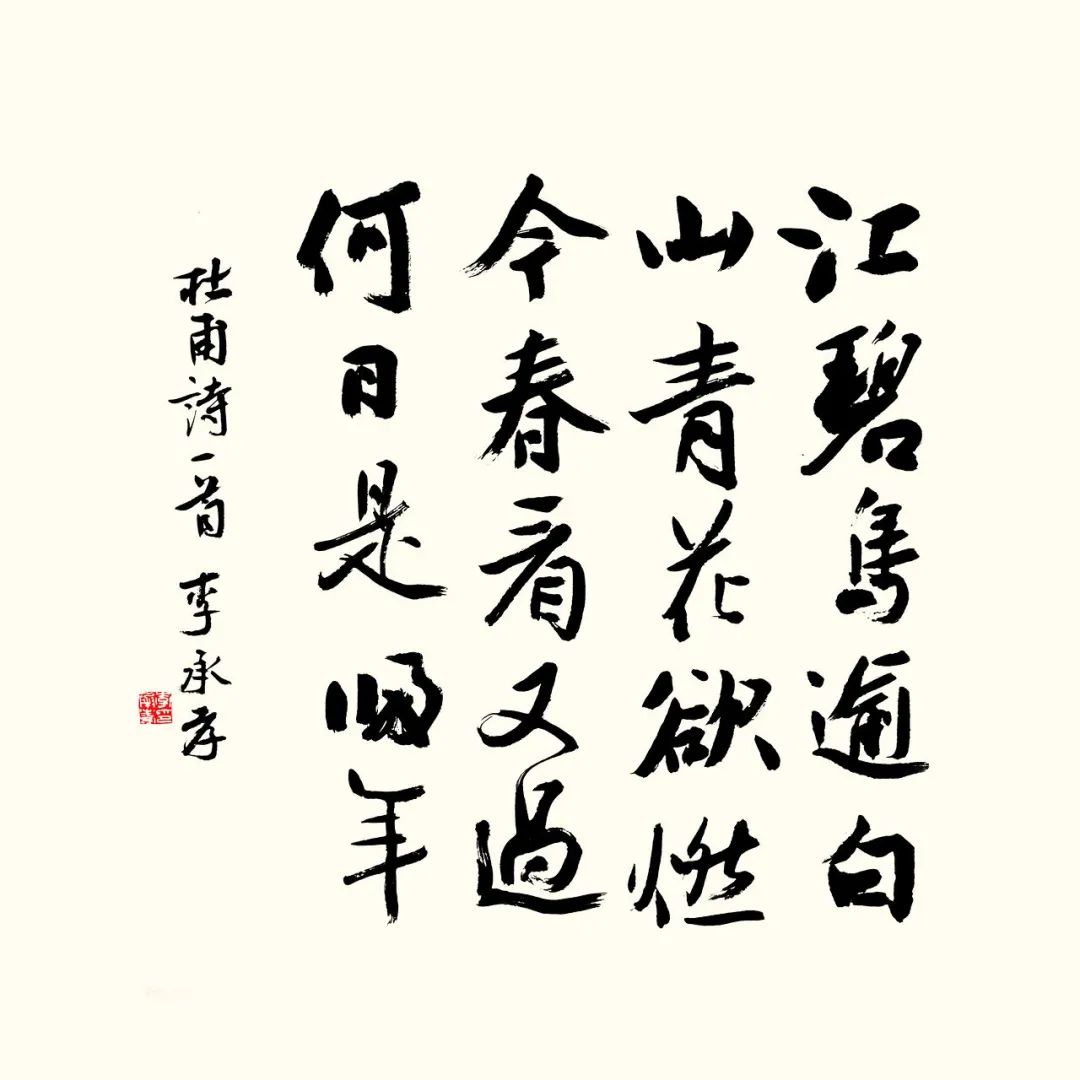 江碧鳥逾白
山青花欲燃
今春看又過
何日是歸年
杜甫詩一首 李承孝